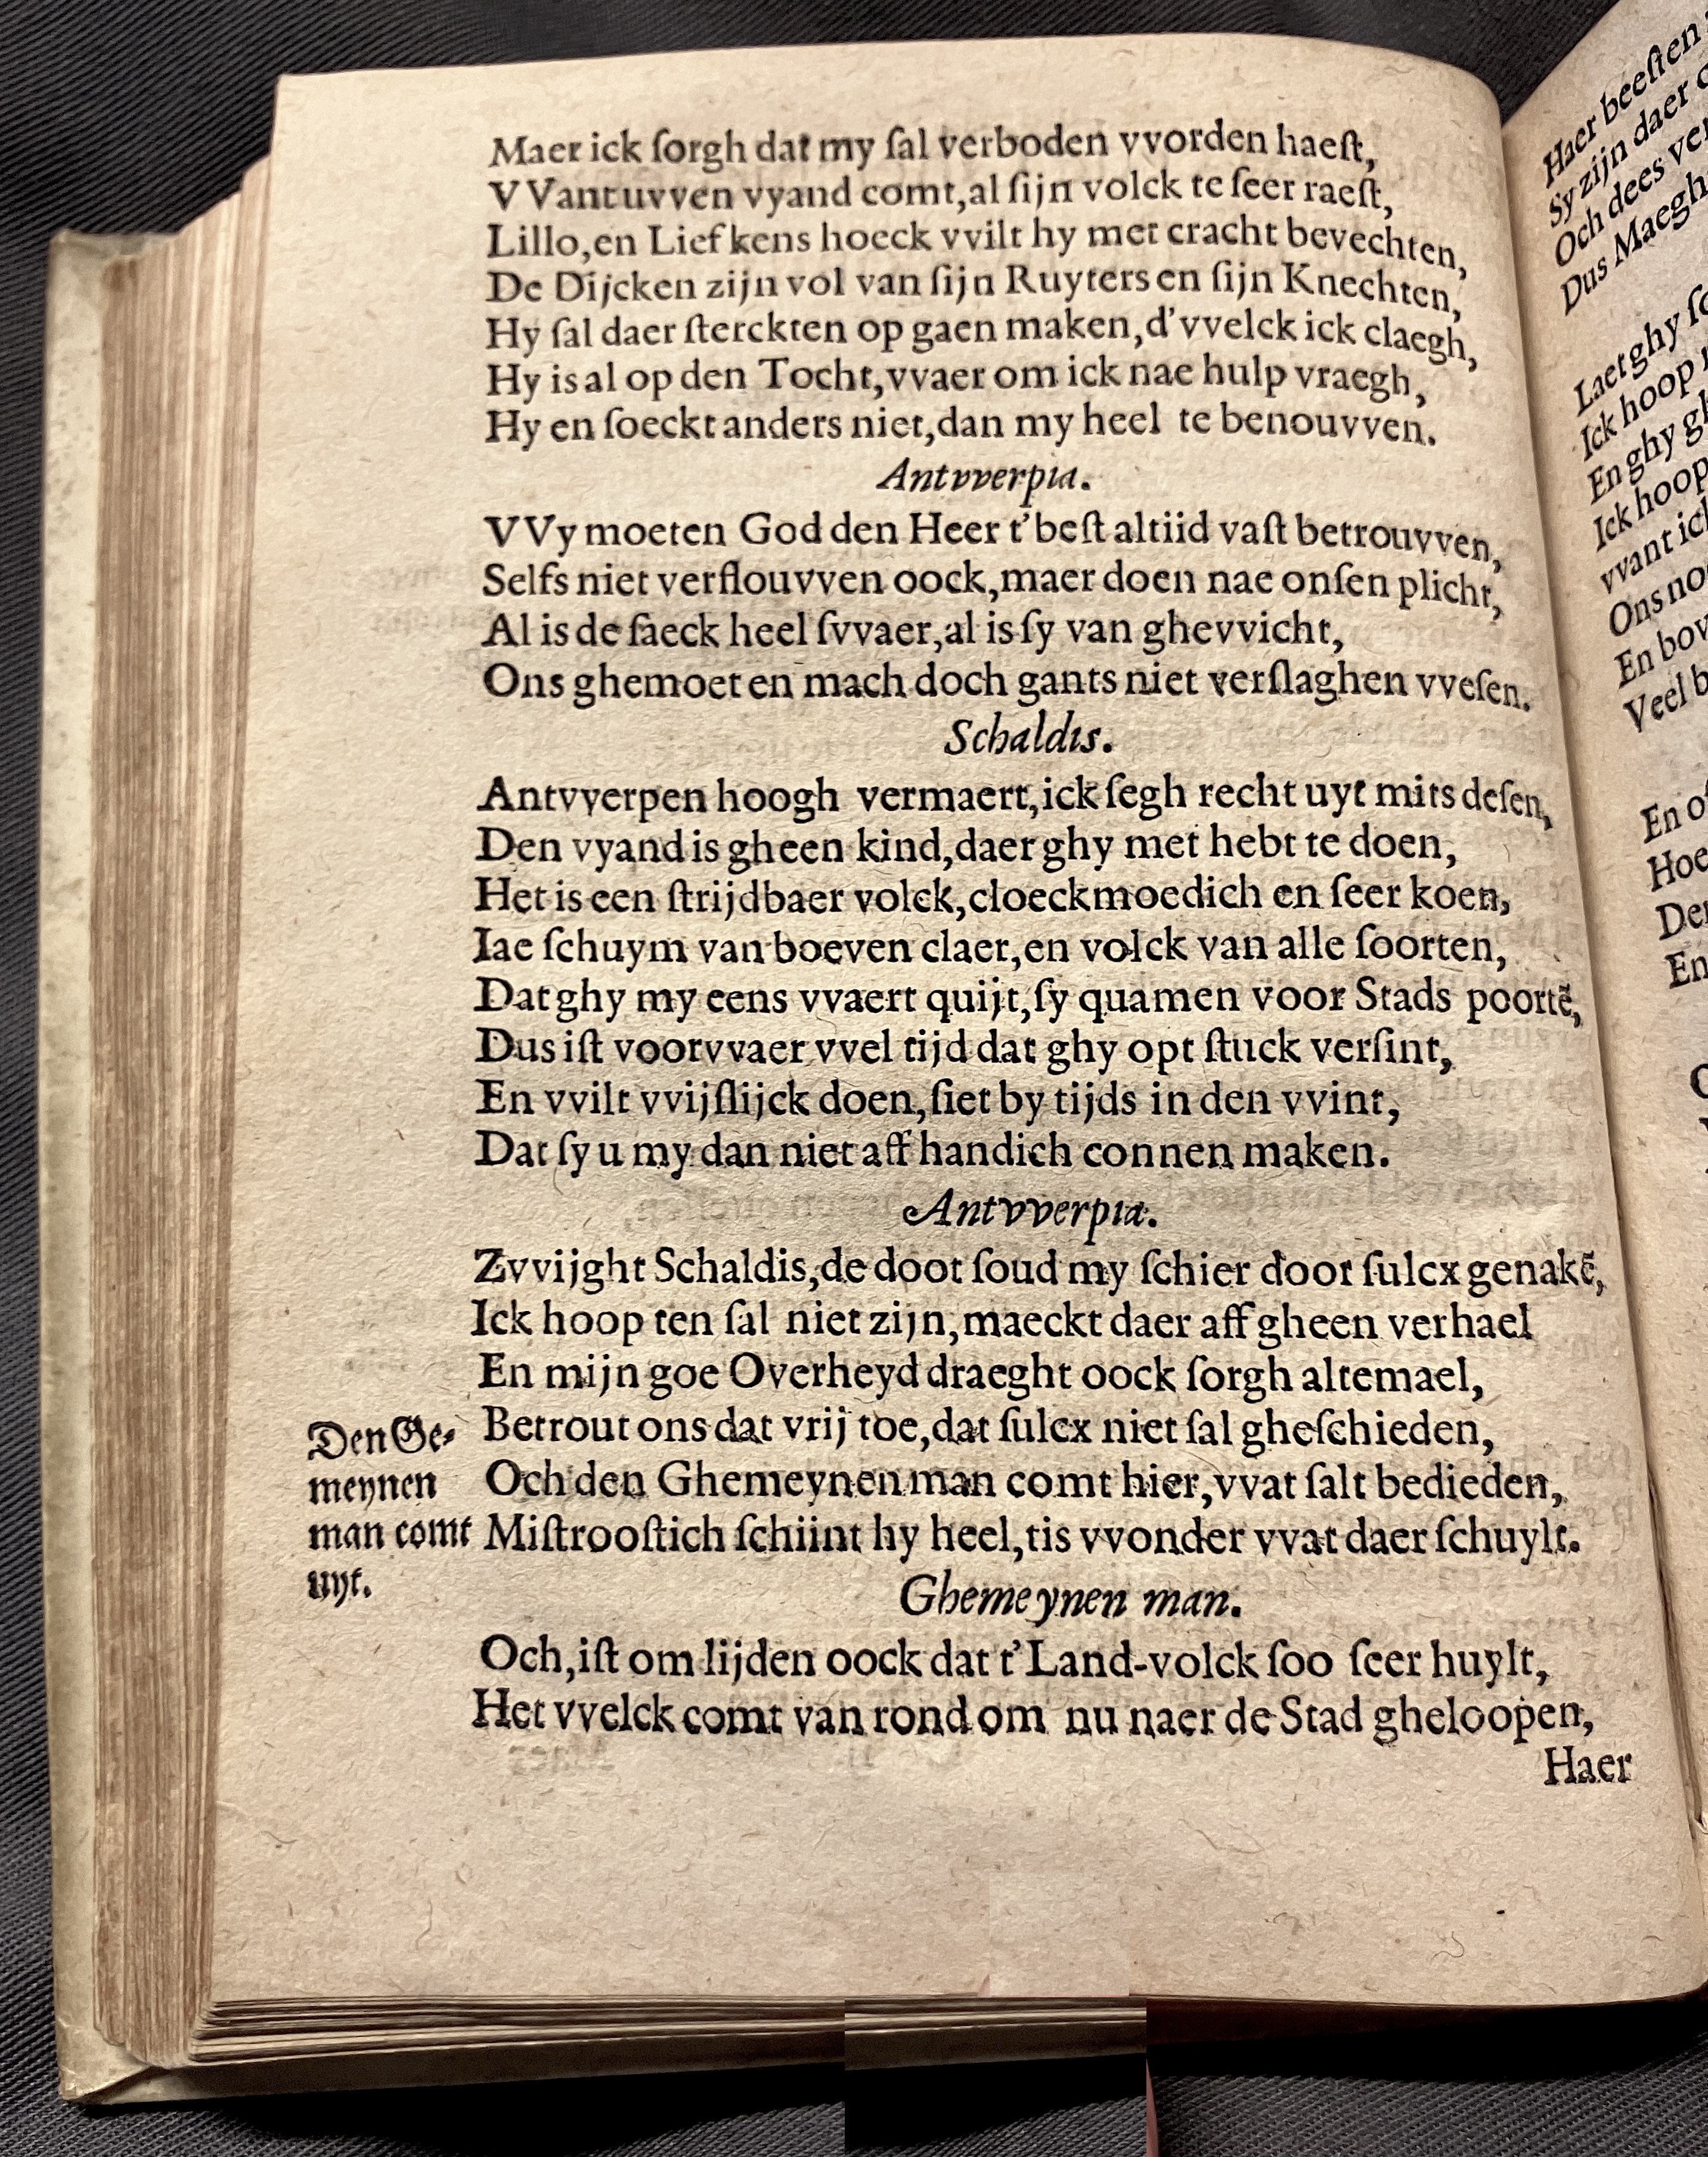 Maer ick ſorgh dat my ſal verboden vvorden haeſt,
VVant uvven vyand comt, al ſijn volck te ſeer raeſt,
Lillo, en Liefkens hoeck vvilt hy met cracht bevechten,
De Dijcken zijn vol van ſijn Ruyters en ſijn Knechten,
Hy ſal daer ſterckten op gaen maken, d'vvelck ick claegh,
Hy is al op den Tocht, vvaer om ick nae hulp vraegh,
Hy en ſoeckt anders niet, dan my heel te benouvven.
Antvverpia.
VVy moeten God den Heer t'beſt altiid vaſt betrouvven,
Selfs niet verflouvven oock, maer doen nae onſen plicht,
Al is de ſaeck heel ſvvaer, al is ſy van ghevvicht,
Ons ghemoet en mach doch gants niet verſlaghen vveſen.
Schaldis.
Antvverpen hoogh vermaert, ick ſegh recht uyt mits deſen,
Den vyand is gheen kind, daer ghy met hebt te doen,
Het is een ſtrijdbaer volck, cloeckmoedich en ſeer koen,
Iae ſchuym van boeven claer, en volck van alle ſoorten,
Dat ghy my eens vvaert quijt, ſy quamen voor Stads poortē,
Dus iſt voorvvaer vvel tijd dat ghy opt ſtuck verſint,
En vvilt vvijſlijck doen, ſiet by tijds in den vvint,
Dat ſy u my dan niet aff handich connen maken.
Antvverpia.
Zvvijght Schaldis, de doot ſoud my ſchier door ſulcx genakē,
Ick hoop ten ſal niet zijn, maeckt daer aff gheen verhael
En mijn goe Overheyd draeght oock ſorgh altemael,
Betrout ons dat vrij toe, dat ſulcx niet ſal gheſchieden,
Och den Ghemeynen man comt hier, vvat ſalt bedieden,
Miſtrooſtich ſchiint hy heel, tis vvonder vvat daer ſchuylt.
Den Ge-
meynen
man comt
uyt.
Ghemeynen man.
Och, iſt om lijden oock dat t'Land-volck ſoo ſeer huylt,
Het vvelck comt van rond om nu naer de Stad gheloopen,
Haer
Haer beeſten
Sy zijn daer
Och dees
Dus Maegh
Laet ghy
Ick hoop
En ghy
Ick hoop
vvant
Ons
En
Veel
En
Hoe